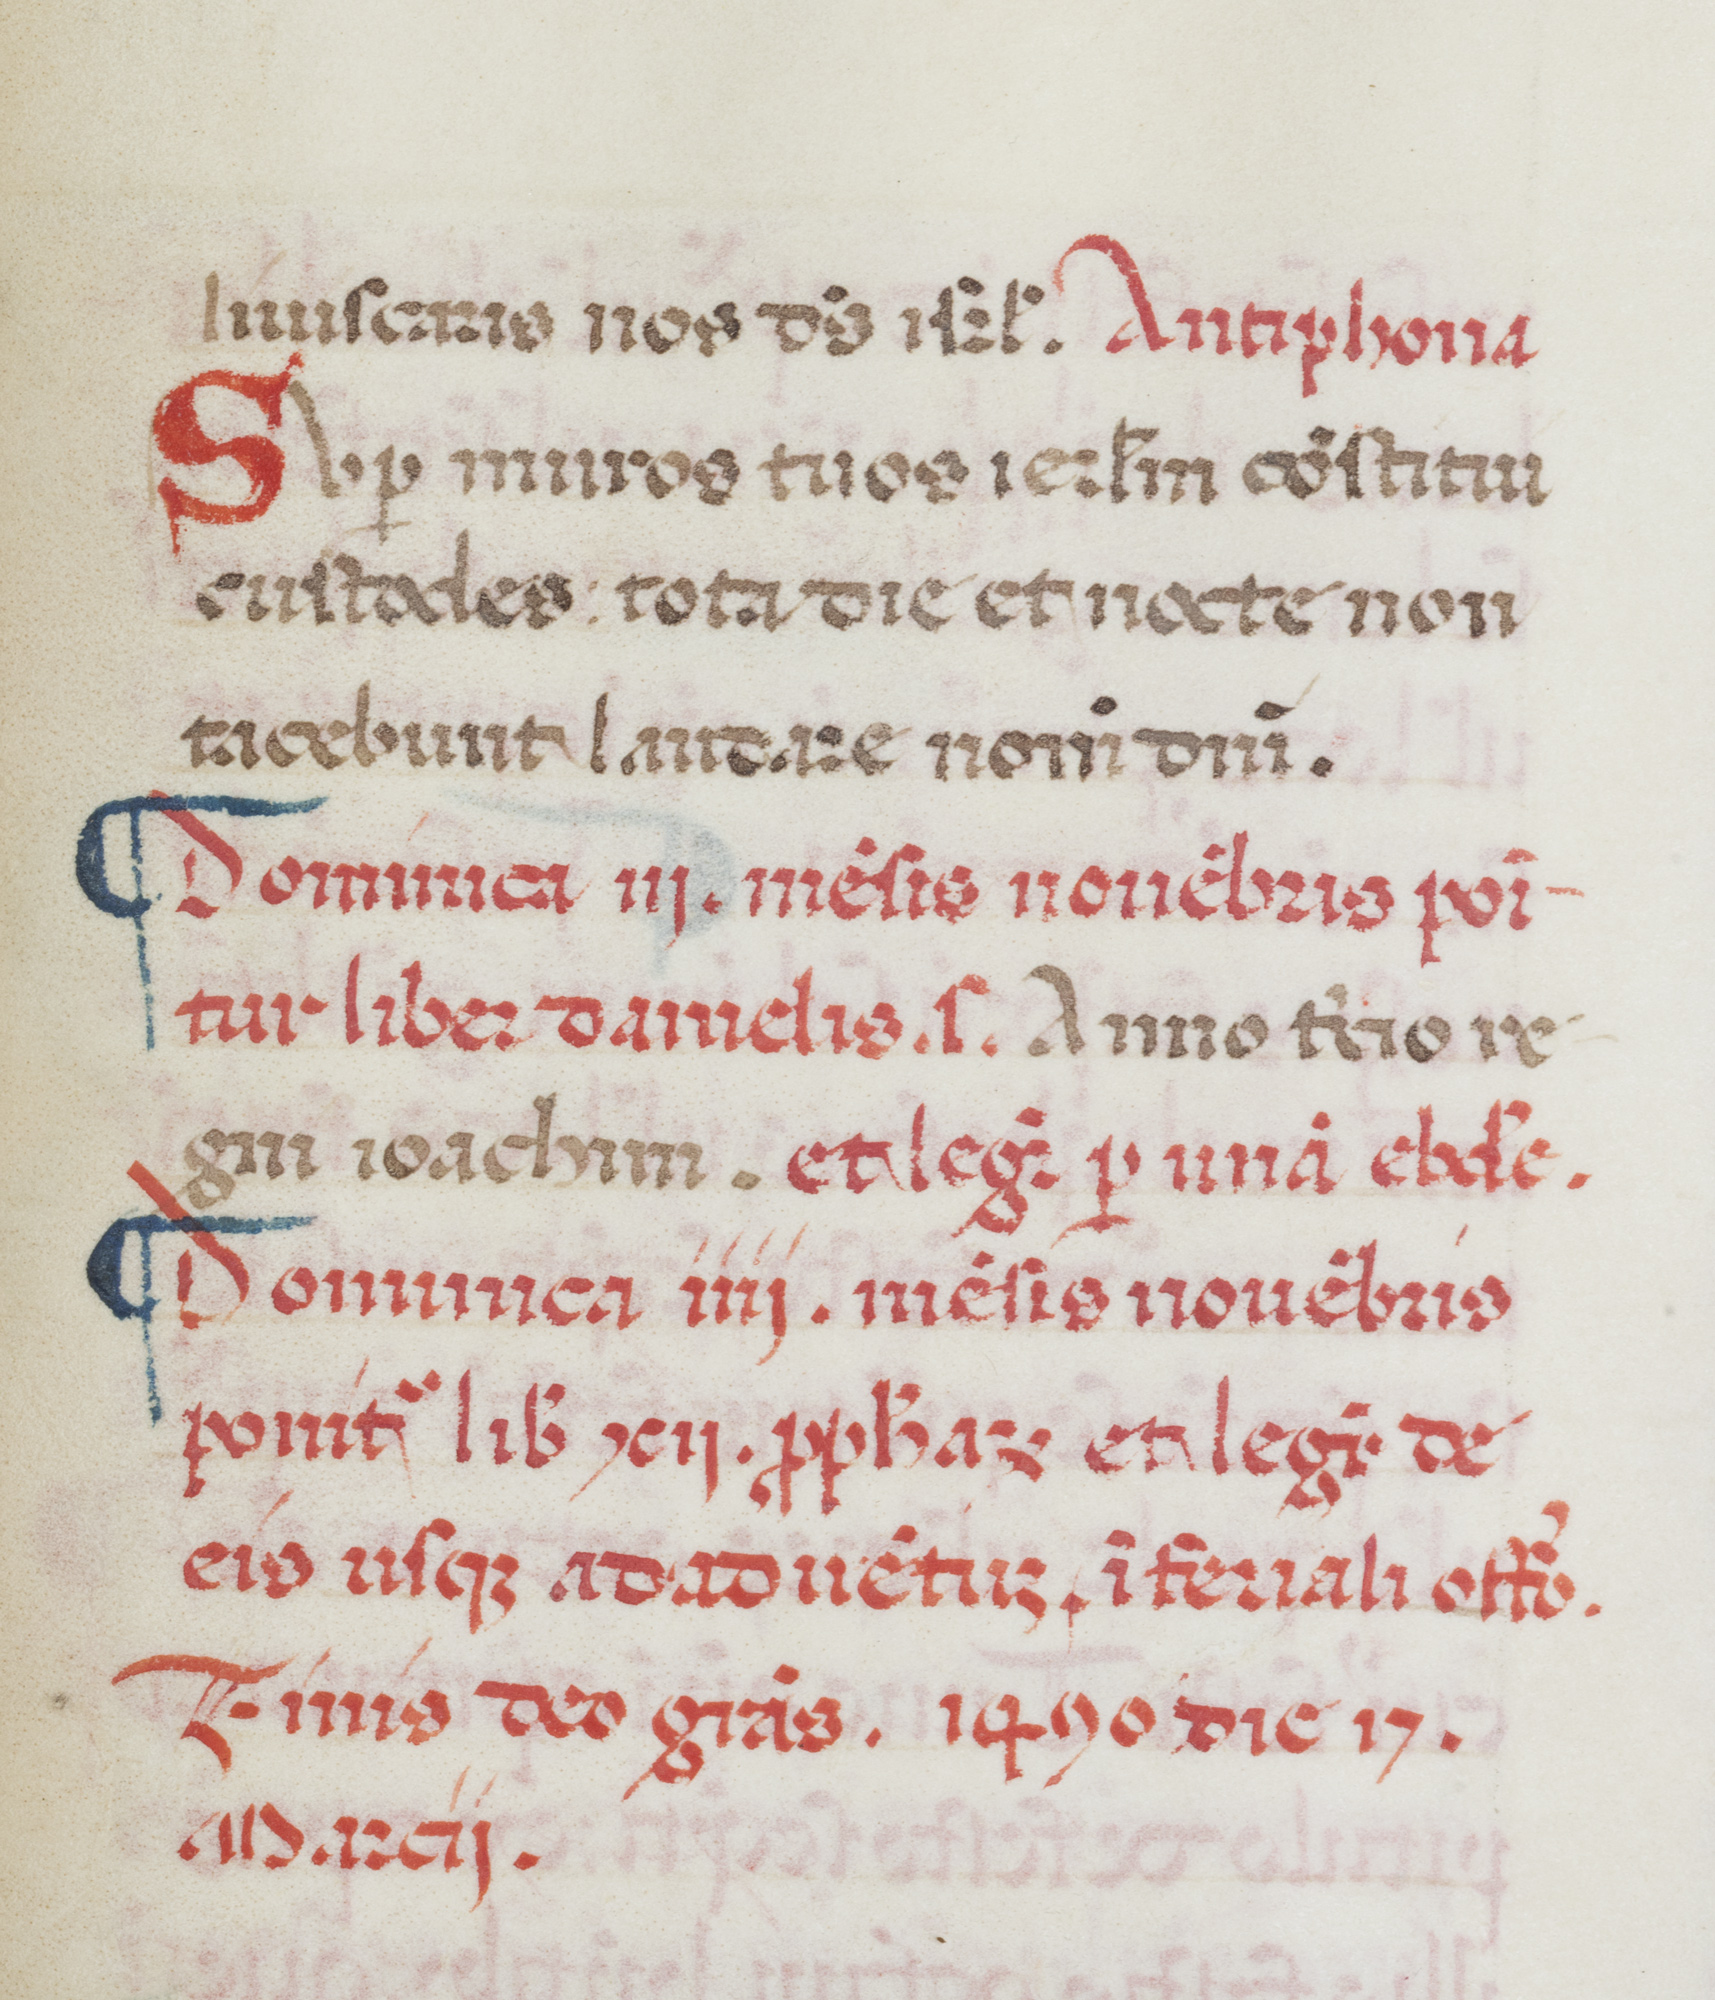 liuiscaris nos dn̄s isrl̄. Antiphona
Sup̱ muros tuos ierlm̄ cōstitui
custodes: tota die et nocte non
tacebunt laudare nom̄ dnī.
¶ Dominica iij. mēsis nouēbris poī-
tur liber danielis .s. Anno t̄rtio re-
gni ioachim. et legr̄ p̱ unā ebdē.
¶ Dominica iiij. mēsis nouēbris
ponit᷑ lib̄ xij. ꝓph̄aꝝ et legr̄ de
eis usqꝫ ad aduētuꝫ, ī feriali offō.
Finis deo grās. 1490 die 17.
Marcij.